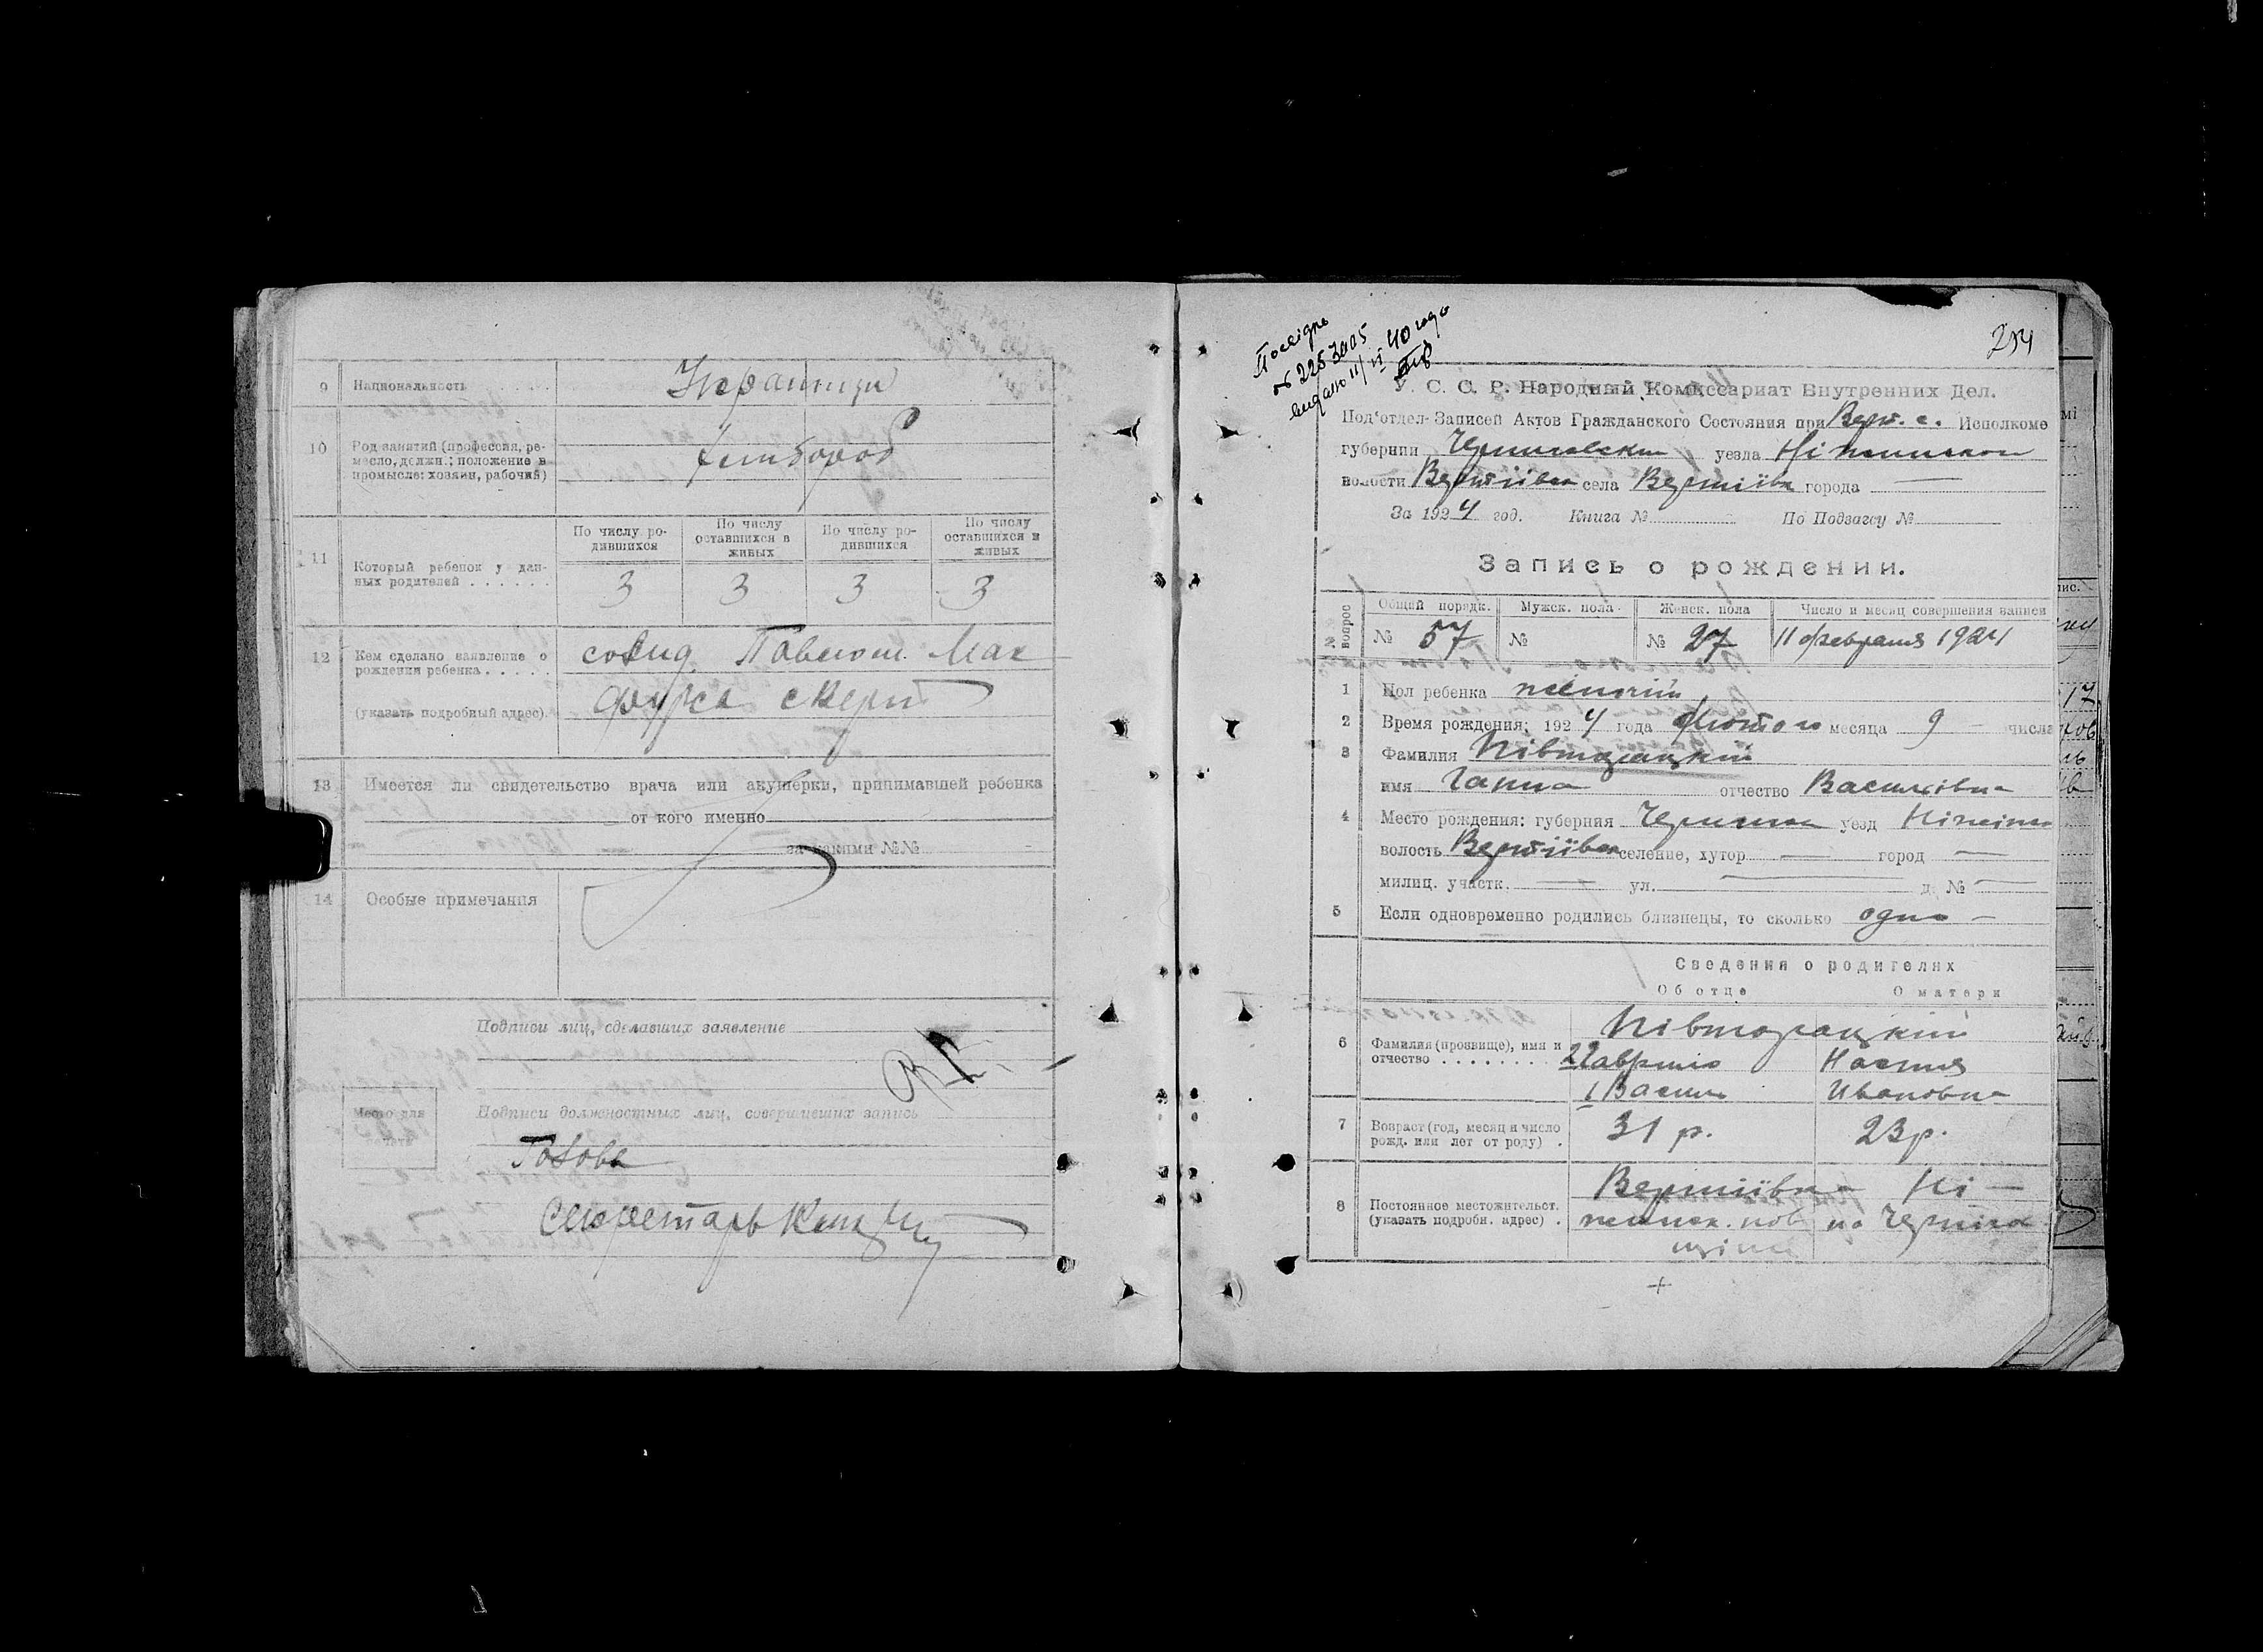 9 Национальность Украинци
10 Род занятий (профессия, ре-
месло, должн.; положение в
промысле: хозяин, рабочий)
хлибороб
По числу ро-
дившихся
По числу
оставшихся в
живых
По числу ро-
дившихся
По числу
оставшихся в
живых
11 Который ребенок у дан-
ных родителей
3 3 3 3
12 Кем сделано заявление о
рождения ребенка
(указать подробный адрес)
13 Имеется ли свидетельство врача или акушерки, принимавшей ребенка
от кого именно
за какими №№
14 Особые примечания
Подписи лиц, сделавших заявление
Подписи должностных лиц, совершивших запись
Место для
печати
Голова
Секретарь
254
40 года
У. С. С. Р. Народный Комиссариат Внутренних Дел.
Под'отдел Записей Актов Гражданского Состояния при Верт. с. Исполкоме
губернии Черниговским уезда Ніжинском
волости Вертіївка села Вертіївка города —
За 1924 год. Книга № По Подзагсу №
Запись о рождении.
№ вопрос Общий порядк. Мужск. пола Женск. пола Число и месяц совершения записи
№ 57 № № 27 11 февраля 1924
1 Пол ребенка жіночий
2 Время рождения: 1924 года Лютого месяца 9 — числа
3 Фамилия Півторацкій
имя Ганна отчество Василівна
4 Место рождения: губерния уезд
волость Вертіївка селение, хутор — город —
милиц. участк. — ул. — д. № —
5 Если одновременно родились близнецы, то сколько одно —
Сведения о родителях
Об отце О матери
6 Фамилия (прозвище), имя и
отчество
Півторацкий
Гаврило Настя
Васил Ивановна
7 Возраст (год, месяц и число
рожд. или лет от роду)
31 р. 23 р.
8 Постоянное местожительст.
(указать подробн. адрес)
Вертіївка Ні —
жинск. пов. на Черніго
щіни